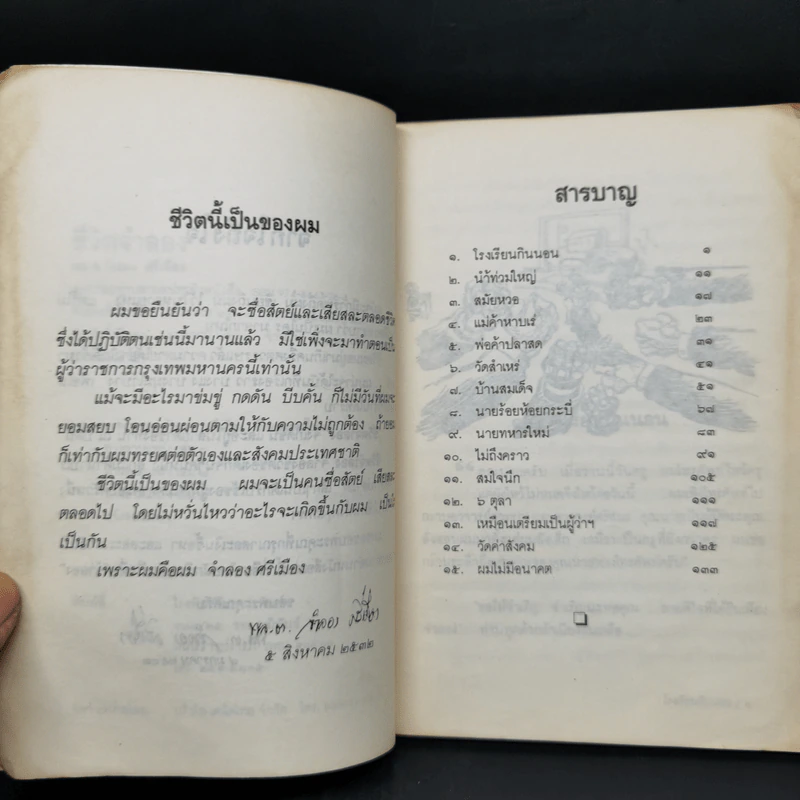 ชีวิตนี้เป็นของผม
ผมขอยืนยันว่า จะซื่อสัตย์และเสียสละตลอดชีวิต
ซึ่งได้ปฏิบัติตนเช่นนี้มานานแล้ว มิใช่เพิ่งจะมาทำตอนเป็น
ผู้ว่าราชการกรุงเทพมหานครนี้เท่านั้น
แม้จะมีอะไรมาข่มขู่ กดดัน บีบคั้น ก็ไม่มีวันที่ผมจะ
ยอมสยบ โอนอ่อนผ่อนตามให้กับความไม่ถูกต้อง ถ้ายอม
ก็เท่ากับผมทรยศต่อตัวเองและสังคมประเทศชาติ
ชีวิตนี้เป็นของผม ผมจะเป็นคนซื่อสัตย์ เสียสละ
ตลอดไป โดยไม่หวั่นไหวว่าอะไรจะเกิดขึ้นกับผม
เป็นกัน
เพราะผมคือผม จำลอง ศรีเมือง
๕ สิงหาคม ๒๕๓๒
สารบาญ
๑. โรงเรียนกินนอน ๑
๒. น้ำท่วมใหญ่ ๑๑
๓. สมัยหวอ ๑๗
๔. แม่ค้าหาบเร่ ๒๓
๕. พ่อค้าปลาสด ๓๑
๖. วัดสำเหร่ ๔๑
๗. บ้านสมเด็จ ๕๑
๘. นายร้อยห้อยกระบี่ ๖๗
๙. นายทหารใหม่ ๘๓
๑๐. ไม่ถึงคราว ๙๑
๑๑. สมใจนึก ๑๐๕
๑๒. ๖ ตุลา ๑๑๑
๑๓. เหมือนเตรียมเป็นผู้ว่าฯ ๑๑๗
๑๔. วัดค่าสังคม ๑๒๕
๑๕. ผมไม่มีอนาคต ๑๓๓